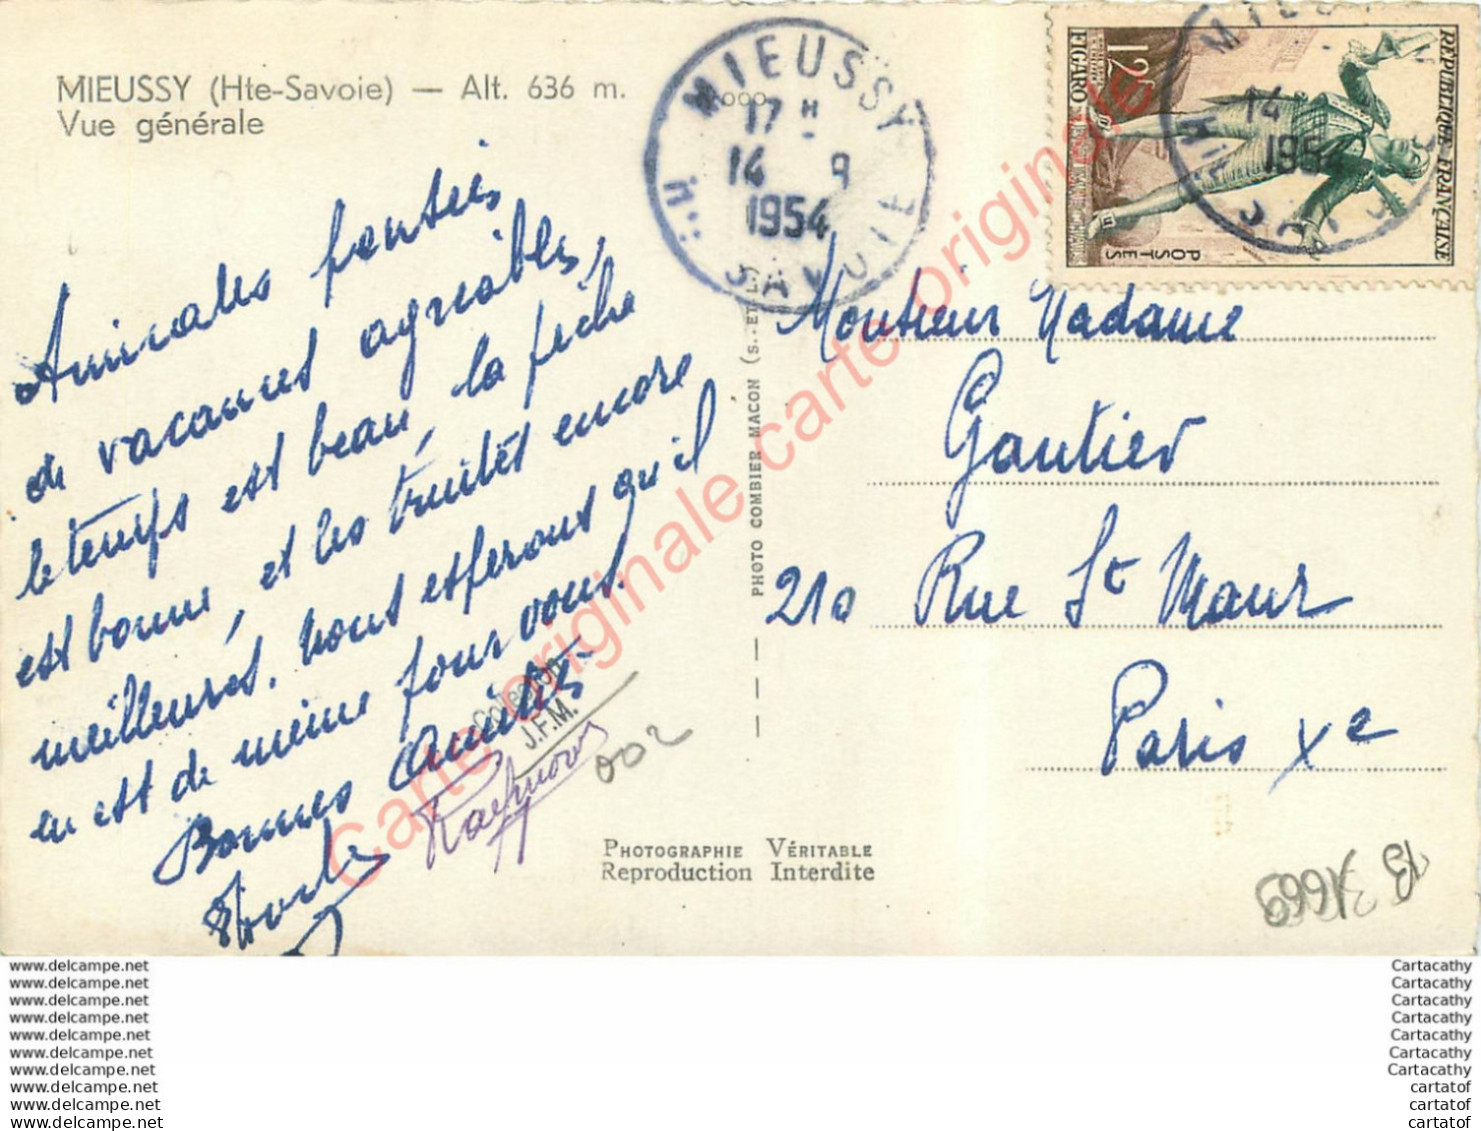 MIEUSSY (Hte-Savoie) — Alt. 636 m.
Vue générale
Amicales pensées
de vacances agréables,
le temps est beau, la pêche
est bonne, et les truites encore
meilleures. Nous espérons qu'il
en est de même pour vous.
Bonnes Amitiés
Collection
J.F.M.
002
MIEUSSY
17 H
14 9
1954
Hte SAVOIE
PHOTO COMBIER MACON (S.-ET
REPUBLIQUE FRANÇAISE
POSTES
12F
FIGARO
14
1954
Monsieur Madame
Gautier
210 Rue St Maur
Paris Xe
PHOTOGRAPHIE VÉRITABLE
Reproduction Interdite
B 31669
Carte originale carte originale carte originale
www.delcampe.net
www.delcampe.net
www.delcampe.net
www.delcampe.net
www.delcampe.net
www.delcampe.net
www.delcampe.net
www.delcampe.net
www.delcampe.net
www.delcampe.net
Cartacathy
Cartacathy
Cartacathy
Cartacathy
Cartacathy
Cartacathy
Cartacathy
cartatof
cartatof
cartatof